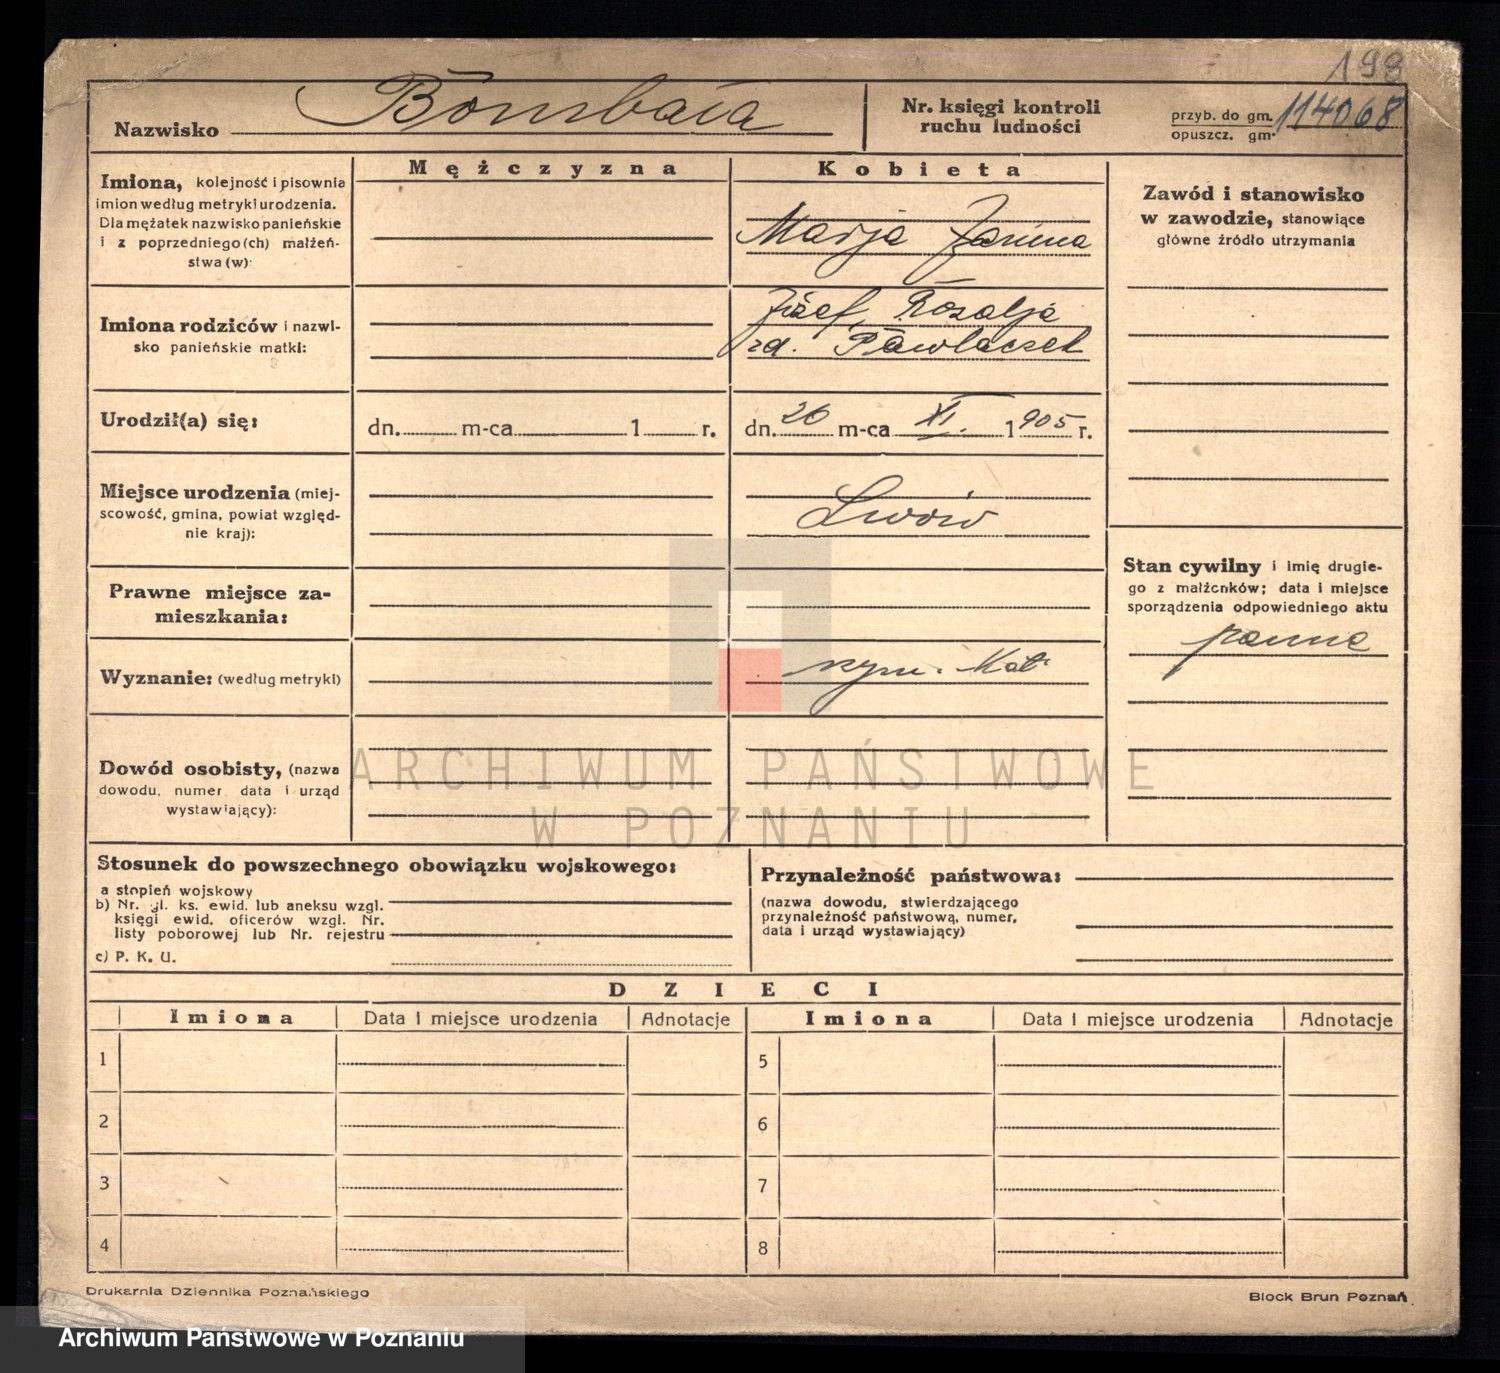 198
Nazwisko Bombała
Nr. księgi kontroli
ruchu ludności
przyb. do gm. 114068
opuszcz. gm.
Mężczyzna
Kobieta
Imiona, kolejność i pisownia
imion według metryki urodzenia.
Dla mężatek nazwisko panieńskie
i z poprzedniego (ch) małżeń-
stwa (w):
Marja Janina
Zawód i stanowisko
w zawodzie, stanowiące
główne źródło utrzymania
Imiona rodziców i nazwi-
sko panieńskie matki:
Józef, Rozalja
zd. Pawlaczek
Urodził(a) się:
dn. m-ca 1 r.
dn. 26 m-ca XI. 1905 r.
Miejsce urodzenia (miej-
scowość, gmina, powiat względ-
nie kraj):
Lwów
Prawne miejsce za-
mieszkania:
Stan cywilny i imię drugie-
go z małżonków; data i miejsce
sporządzenia odpowiedniego aktu
panna
Wyznanie: (według metryki)
rzym. Kat.
Dowód osobisty, (nazwa
dowodu, numer data i urząd
wystawiający):
ARCHIWUM PAŃSTWOWE
W POZNANIU
Stosunek do powszechnego obowiązku wojskowego:
a stopień wojskowy
b) Nr. gl. ks. ewid. lub aneksu wzgl.
księgi ewid. oficerów wzgl. Nr.
listy poborowej lub Nr. rejestru
c) P. K. U.
Przynależność państwowa:
(nazwa dowodu, stwierdzającego
przynależność państwową, numer,
data i urząd wystawiający)
DZIECI
Imiona Data i miejsce urodzenia Adnotacje Imiona Data i miejsce urodzenia Adnotacje
1 5
2 6
3 7
4 8
Drukarnia Dziennika Poznańskiego
Block Brun Poznań
Archiwum Państwowe w Poznaniu